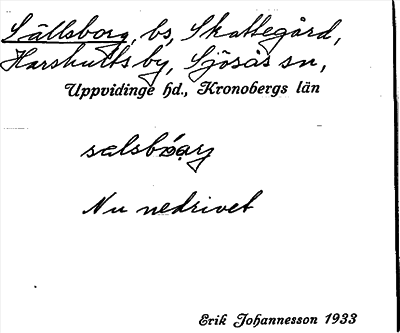 Sällsborg, bs, Skattegård,
Harshults by, Sjösås sn,
Uppvidinge hd., Kronobergs län
Nu nedrivet
Erik Johannesson 1933